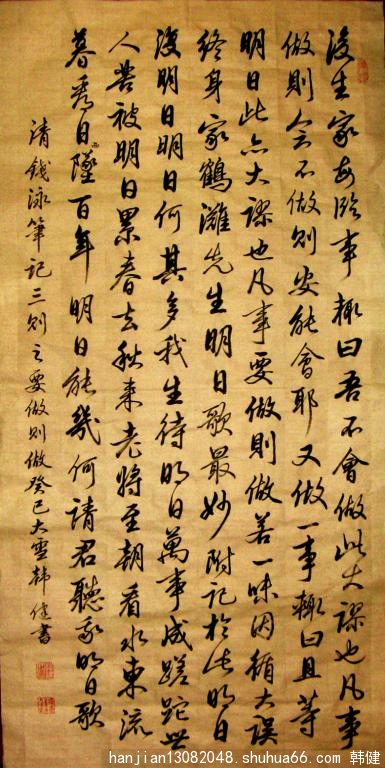 後生家每臨事輒曰吾不會做此大謬也凡事
做則會不做則安能會耶又做一事輒曰且等
明日此亦大謬也凡事要做則做若一味因循大誤
終身家鶴灘先生明日歌最妙附記於此明日
復明日明日何其多我生待明日萬事成蹉跎世
人苦被明日累春去秋來老將至朝看水東流
暮看日西墜百年明日能幾何請君聽我明日歌
清錢泳筆記三則之要做則做癸巳大雪韓健書
hanjian13082048.shuhua66.com 韩健